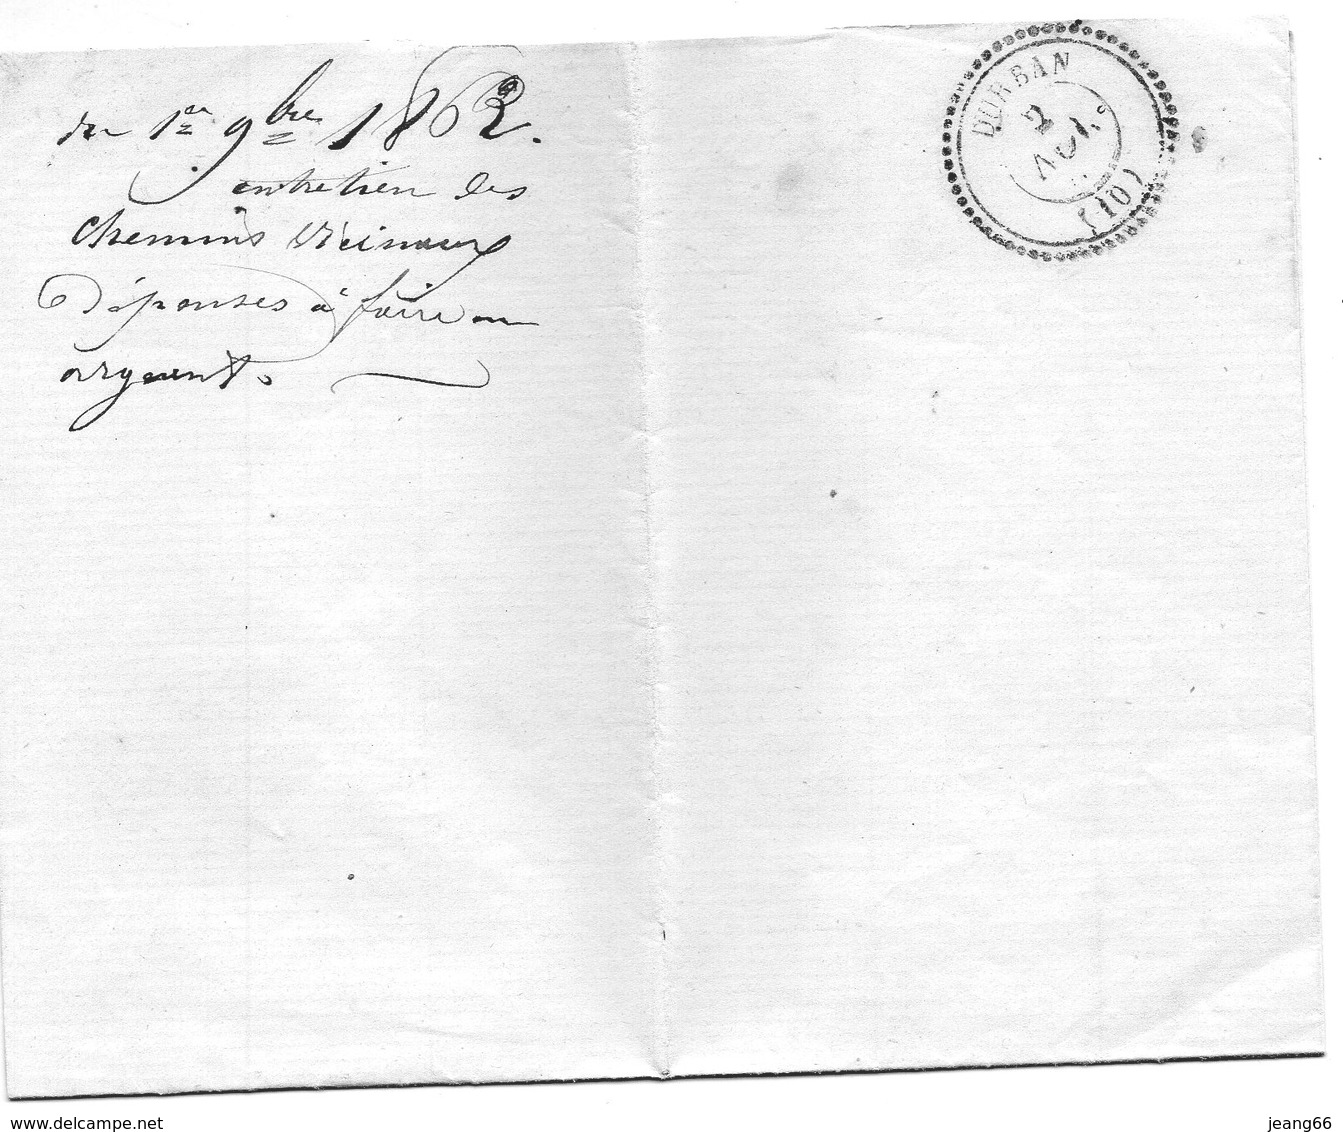 du 1er 9bre 1862.
entretien des
chemins vicinaux
Dépenses à faire en
argent.
DURBAN
2
(10)
www.delcampe.net
jeang66